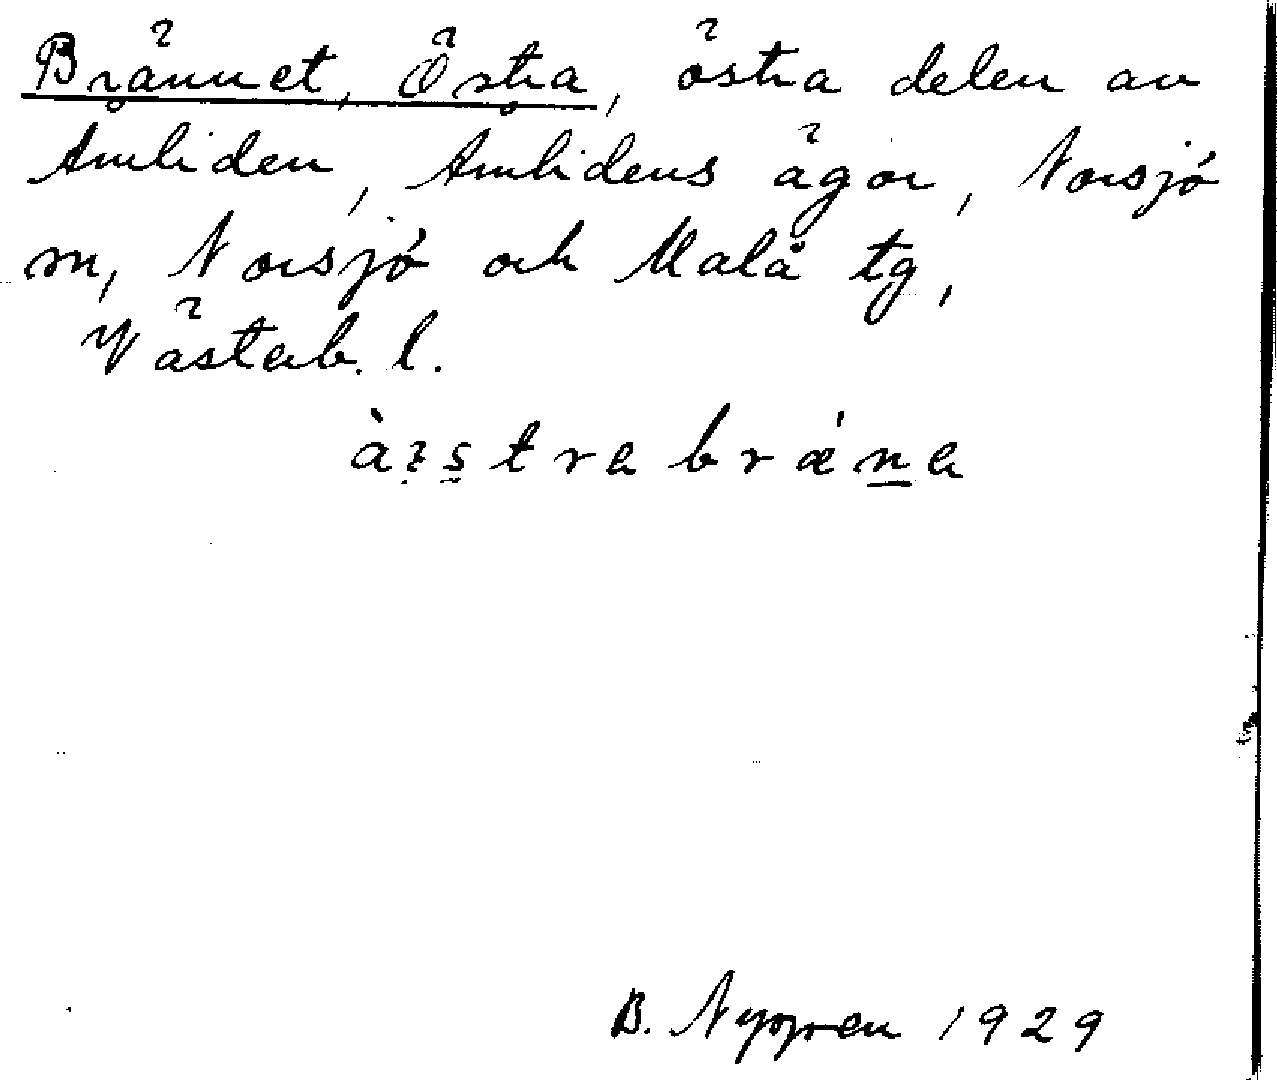 Brännet, Östra, östra delen av
Amliden, Amlidens ägor, Norsjö
sn, Norsjö och Malå tg,
Västerb. l.
B. Nygren 1929